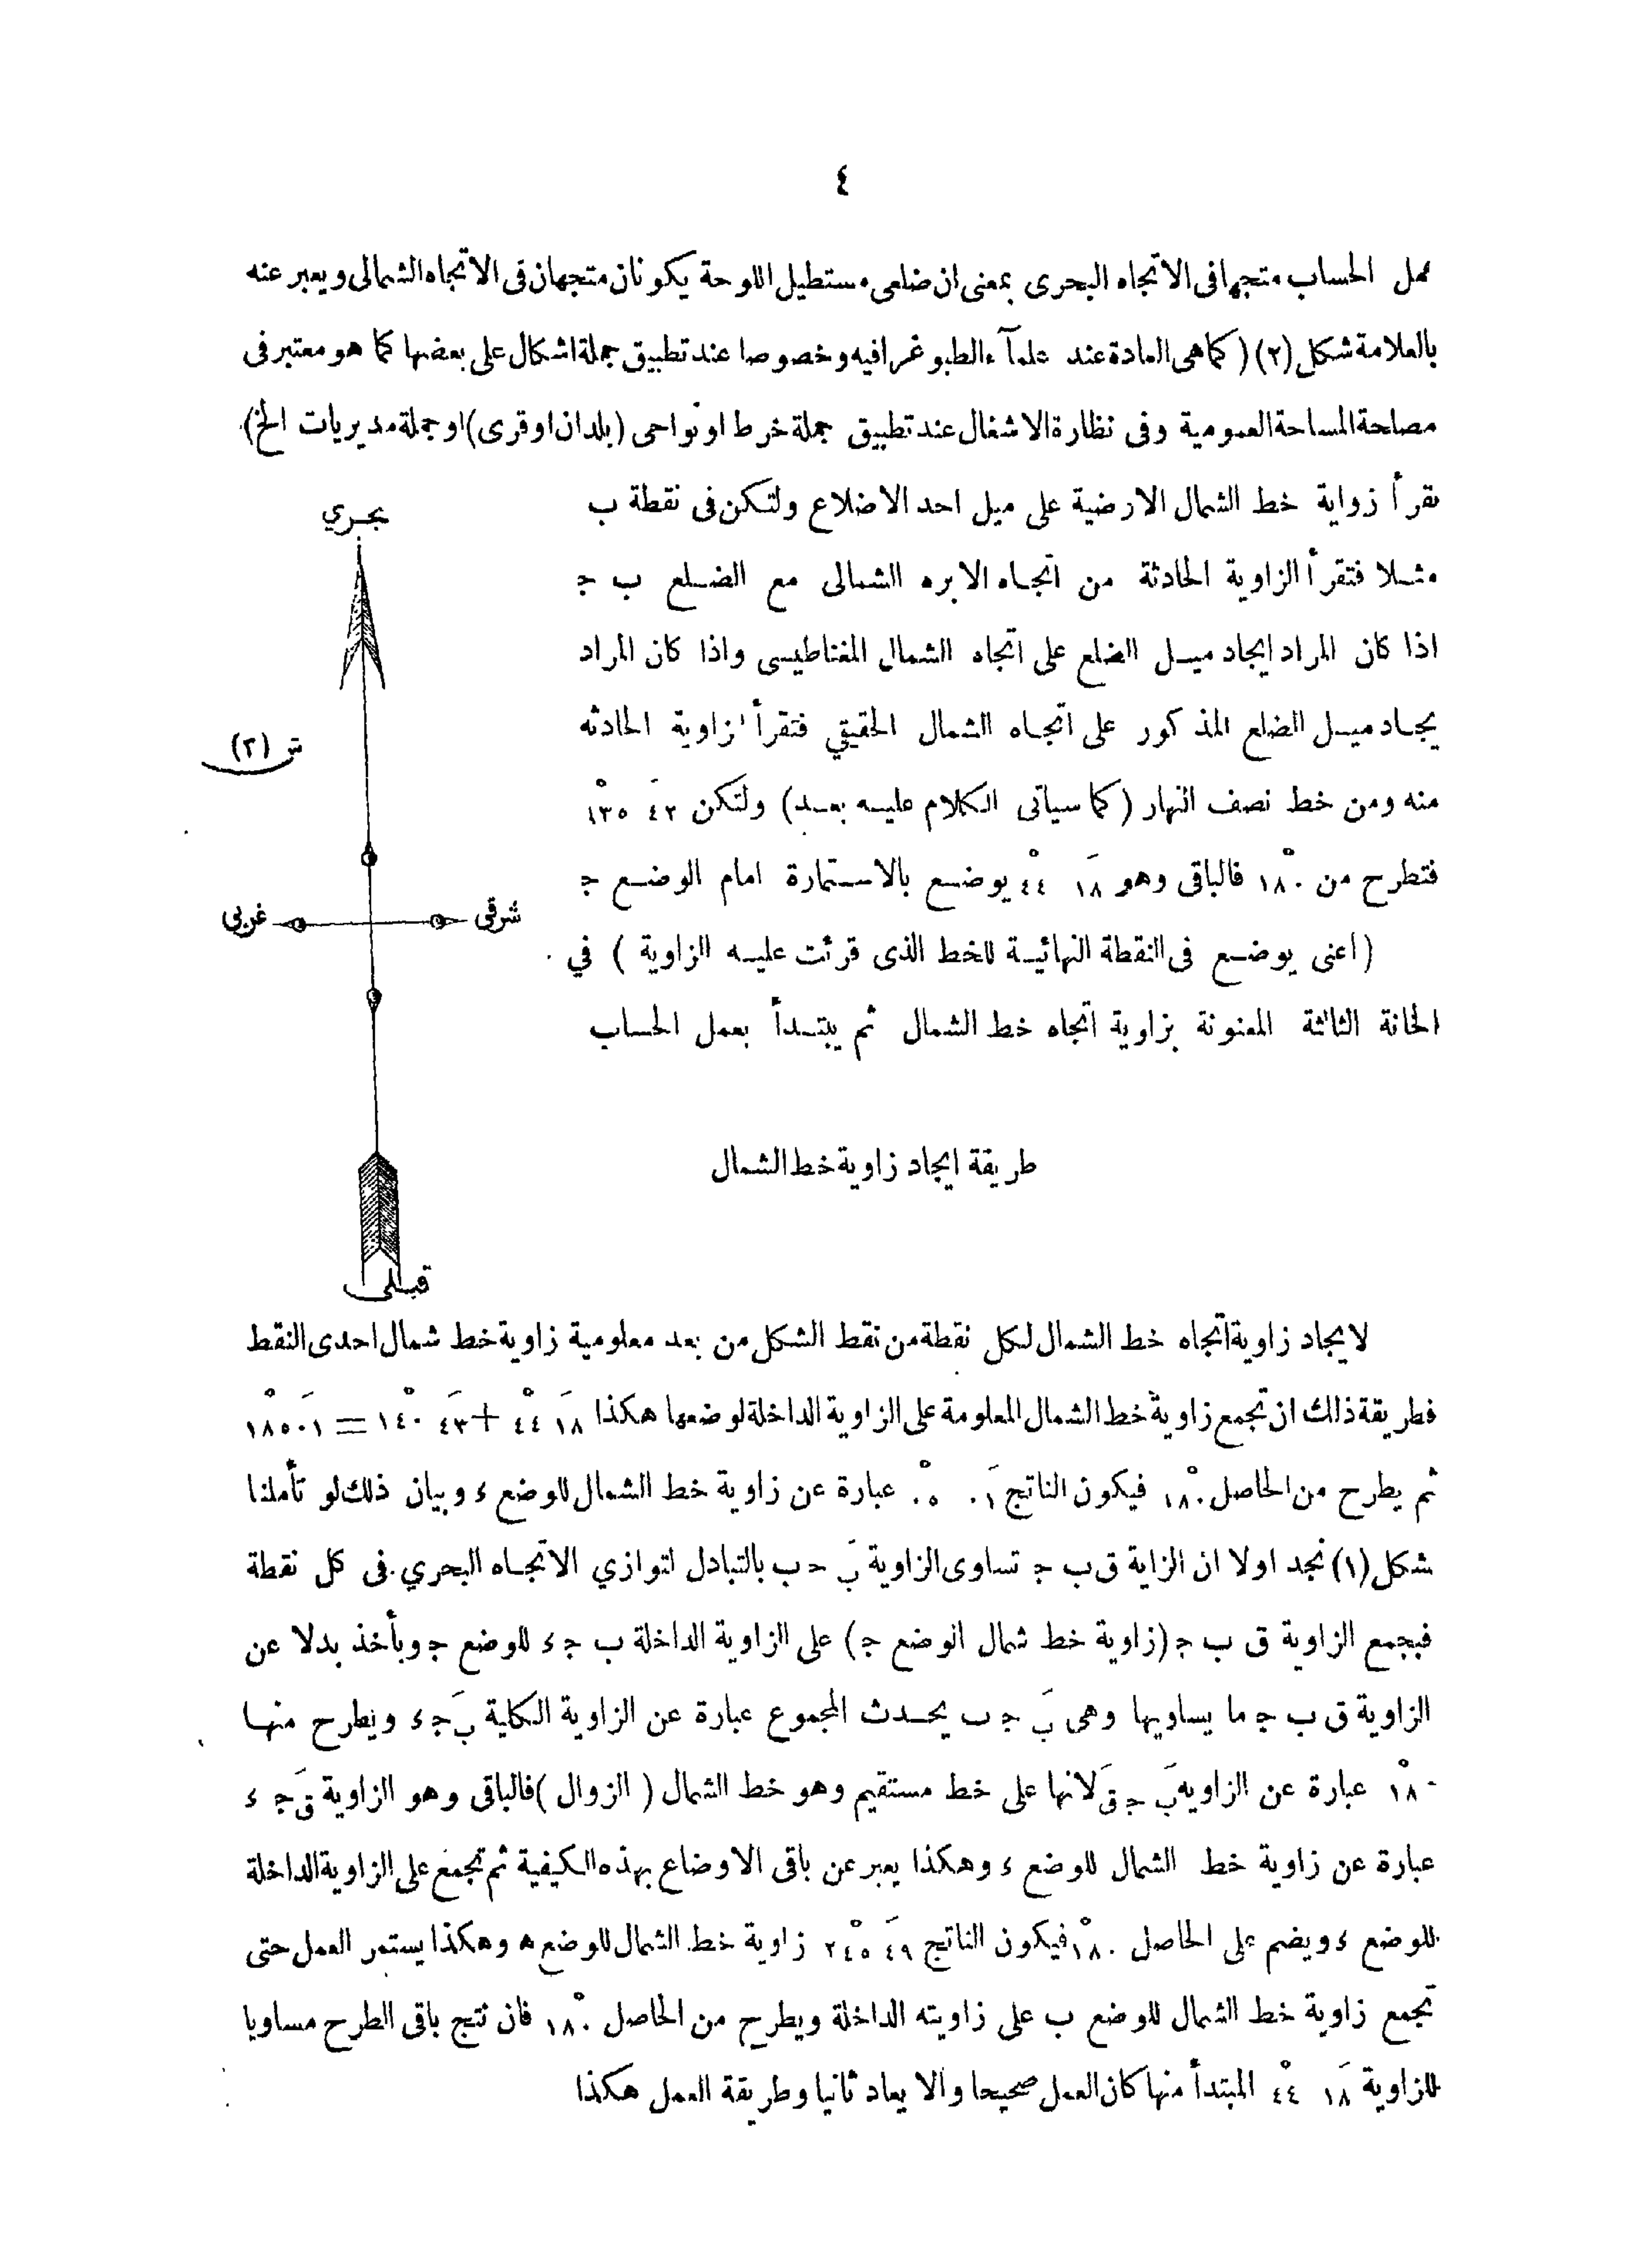 ٤
عمل الحساب متجها فى الاتجاه البحرى بمعنى ان ضلعى مستطيل اللوحة يكونان متجهان فى الاتجاه الشمالى ويعبر عنه
بالعلامة شكل (٢) ( كما هى العادة عند علمآء الطبوغرافيه وخصوصا عند تطبيق جملة اشكال على بعضها كما هو معتبر فى
مصلحة المساحة العمومية وفى نظارة الاشغال عند تطبيق جملة خرط او نواحى (بلدان او قرى) او جملة مديريات الخ)
نقرأ زواية خط الشمال الارضية على ميل احد الاضلاع ولتكن فى نقطة ب
مثلا فتقرأ الزاوية الحادثة من اتجاه الابره الشمالى مع الضلع ب ج
اذا كان المراد ايجاد ميل الضلع على اتجاه الشمال المغناطيسى واذا كان المراد
يجاد ميل الضلع المذكور على اتجاه الشمال الحقيقي فتقرأ لزاوية الحادثه
منه ومن خط نصف النهار (كما سياتى الكلام عليه بعد) ولتكن ٤٢َ ١٣٥ْ
فتطرح من ١٨٠ْ فالباقى وهو ١٨َ ٤٤ْ يوضع بالاستمارة امام الوضع ج
(اعنى يوضع فى النقطة النهائية للخط الذى قرئت عليه الزاوية ) في
الخانة الثالثة المعنونة بزاوية اتجاه خط الشمال ثم يبتدأ بعمل الحساب
بحري
ش (٢)
شرقى
غربى
قبلى
طريقة ايجاد زاوية خط الشمال
لايجاد زاوية اتجاه خط الشمال لكل نقطة من نقط الشكل من بعد معلومية زاوية خط شمال احدى النقط
فطريقة ذلك ان تجمع زاوية خط الشمال المعلومة على الزاوية الداخلة لوضعها هكذا ١٨َ ٤٤ْ + ٤٣َ ١٤٠ْ = ٠١َ ١٨٥ْ
ثم يطرح من الحاصل ١٨٠ْ فيكون الناتج ٠١َ ٠٥ْ عبارة عن زاوية خط الشمال للوضع ء وبيان ذلك لو تأملنا
شكل (١) نجد اولا ان الزاية ق ب ج تساوى الزاوية بَ ح ب بالتبادل لتوازي الاتجاه البحري فى كل نقطة
فبجمع الزاوية ق ب ج (زاوية خط شمال الوضع ج) على الزاوية الداخلة ب ج ء للوضع ج وبأخذ بدلا عن
الزاوية ق ب ج ما يساويها وهى بَ ج ب يحدث المجموع عبارة عن الزاوية الكلية بَ ج ء ويطرح منها
١٨٠ْ عبارة عن الزاويه بَ ج قَ لانها على خط مستقيم وهو خط الشمال ( الزوال ) فالباقى وهو الزاوية قَ ج ء
عبارة عن زاوية خط الشمال للوضع ء وهكذا يعبر عن باقى الاوضاع بهذه الكيفية ثم تجمع على الزاوية الداخلة
للوضع ء ويضم على الحاصل ١٨٠ْ فيكون الناتج ٤٩َ ٢٤٥ْ زاوية خط الشمال للوضع ه وهكذا يستمر العمل حتى
تجمع زاوية خط الشمال للوضع ب على زاويته الداخلة ويطرح من الحاصل ١٨٠ْ فان نتج باقى الطرح مساويا
للزاوية ١٨َ ٤٤ْ المبتدأ منها كان العمل صحيحا والا يعاد ثانيا وطريقة العمل هكذا